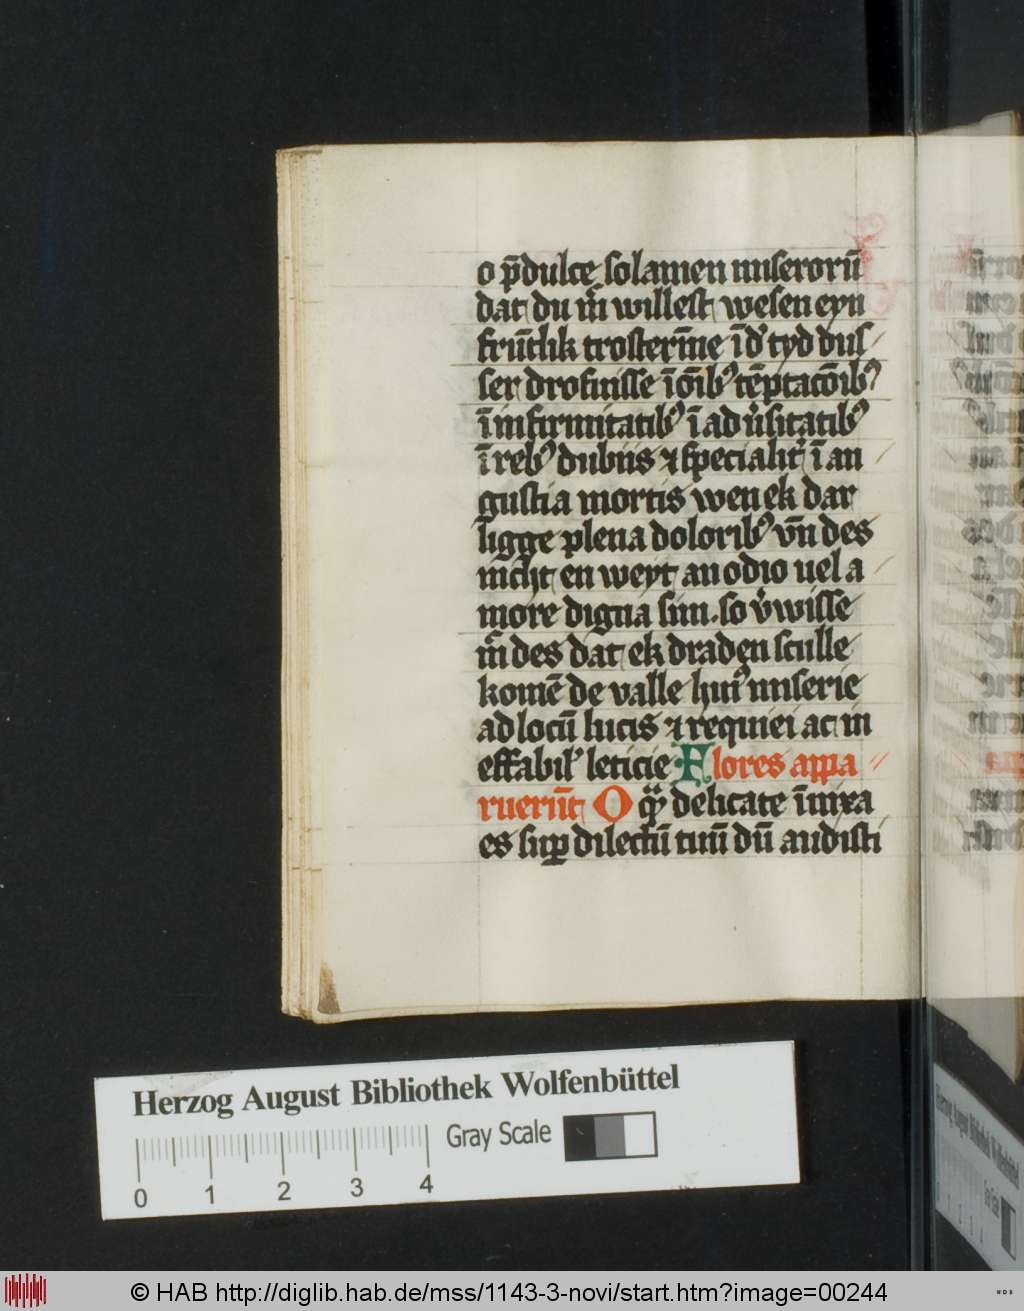 o p̄dulce solamen miserorū
dat du m̄ willest wesen eyn
frūtlik trosterīne ī dͤ tyd dus
ser drofnisse ī oīb⁹ tēptacōib⁹
ī infirmitatib⁹ ī adu̾sitatib⁹
ī reb⁹ dubiis ⁊ specialit̾ ī an
gustia mortis wen ek dar
ligge plena dolorib⁹ vn̄ des
nicht en weyt an odio uel a
more digna sim. so v̾wisse
m̄ des dat ek draden sculle
komē de valle hui⁹ miserie
ad locū lucis ⁊ requiei ac in
effabil̾ leticie Flores appa
ruerūt O qͣ delicate īnixa
es suꝑ dilectū tuū dū audisti
Herzog August Bibliothek Wolfenbüttel
Gray Scale
0 1 2 3 4
© HAB http://diglib.hab.de/mss/1143-3-novi/start.htm?image=00244